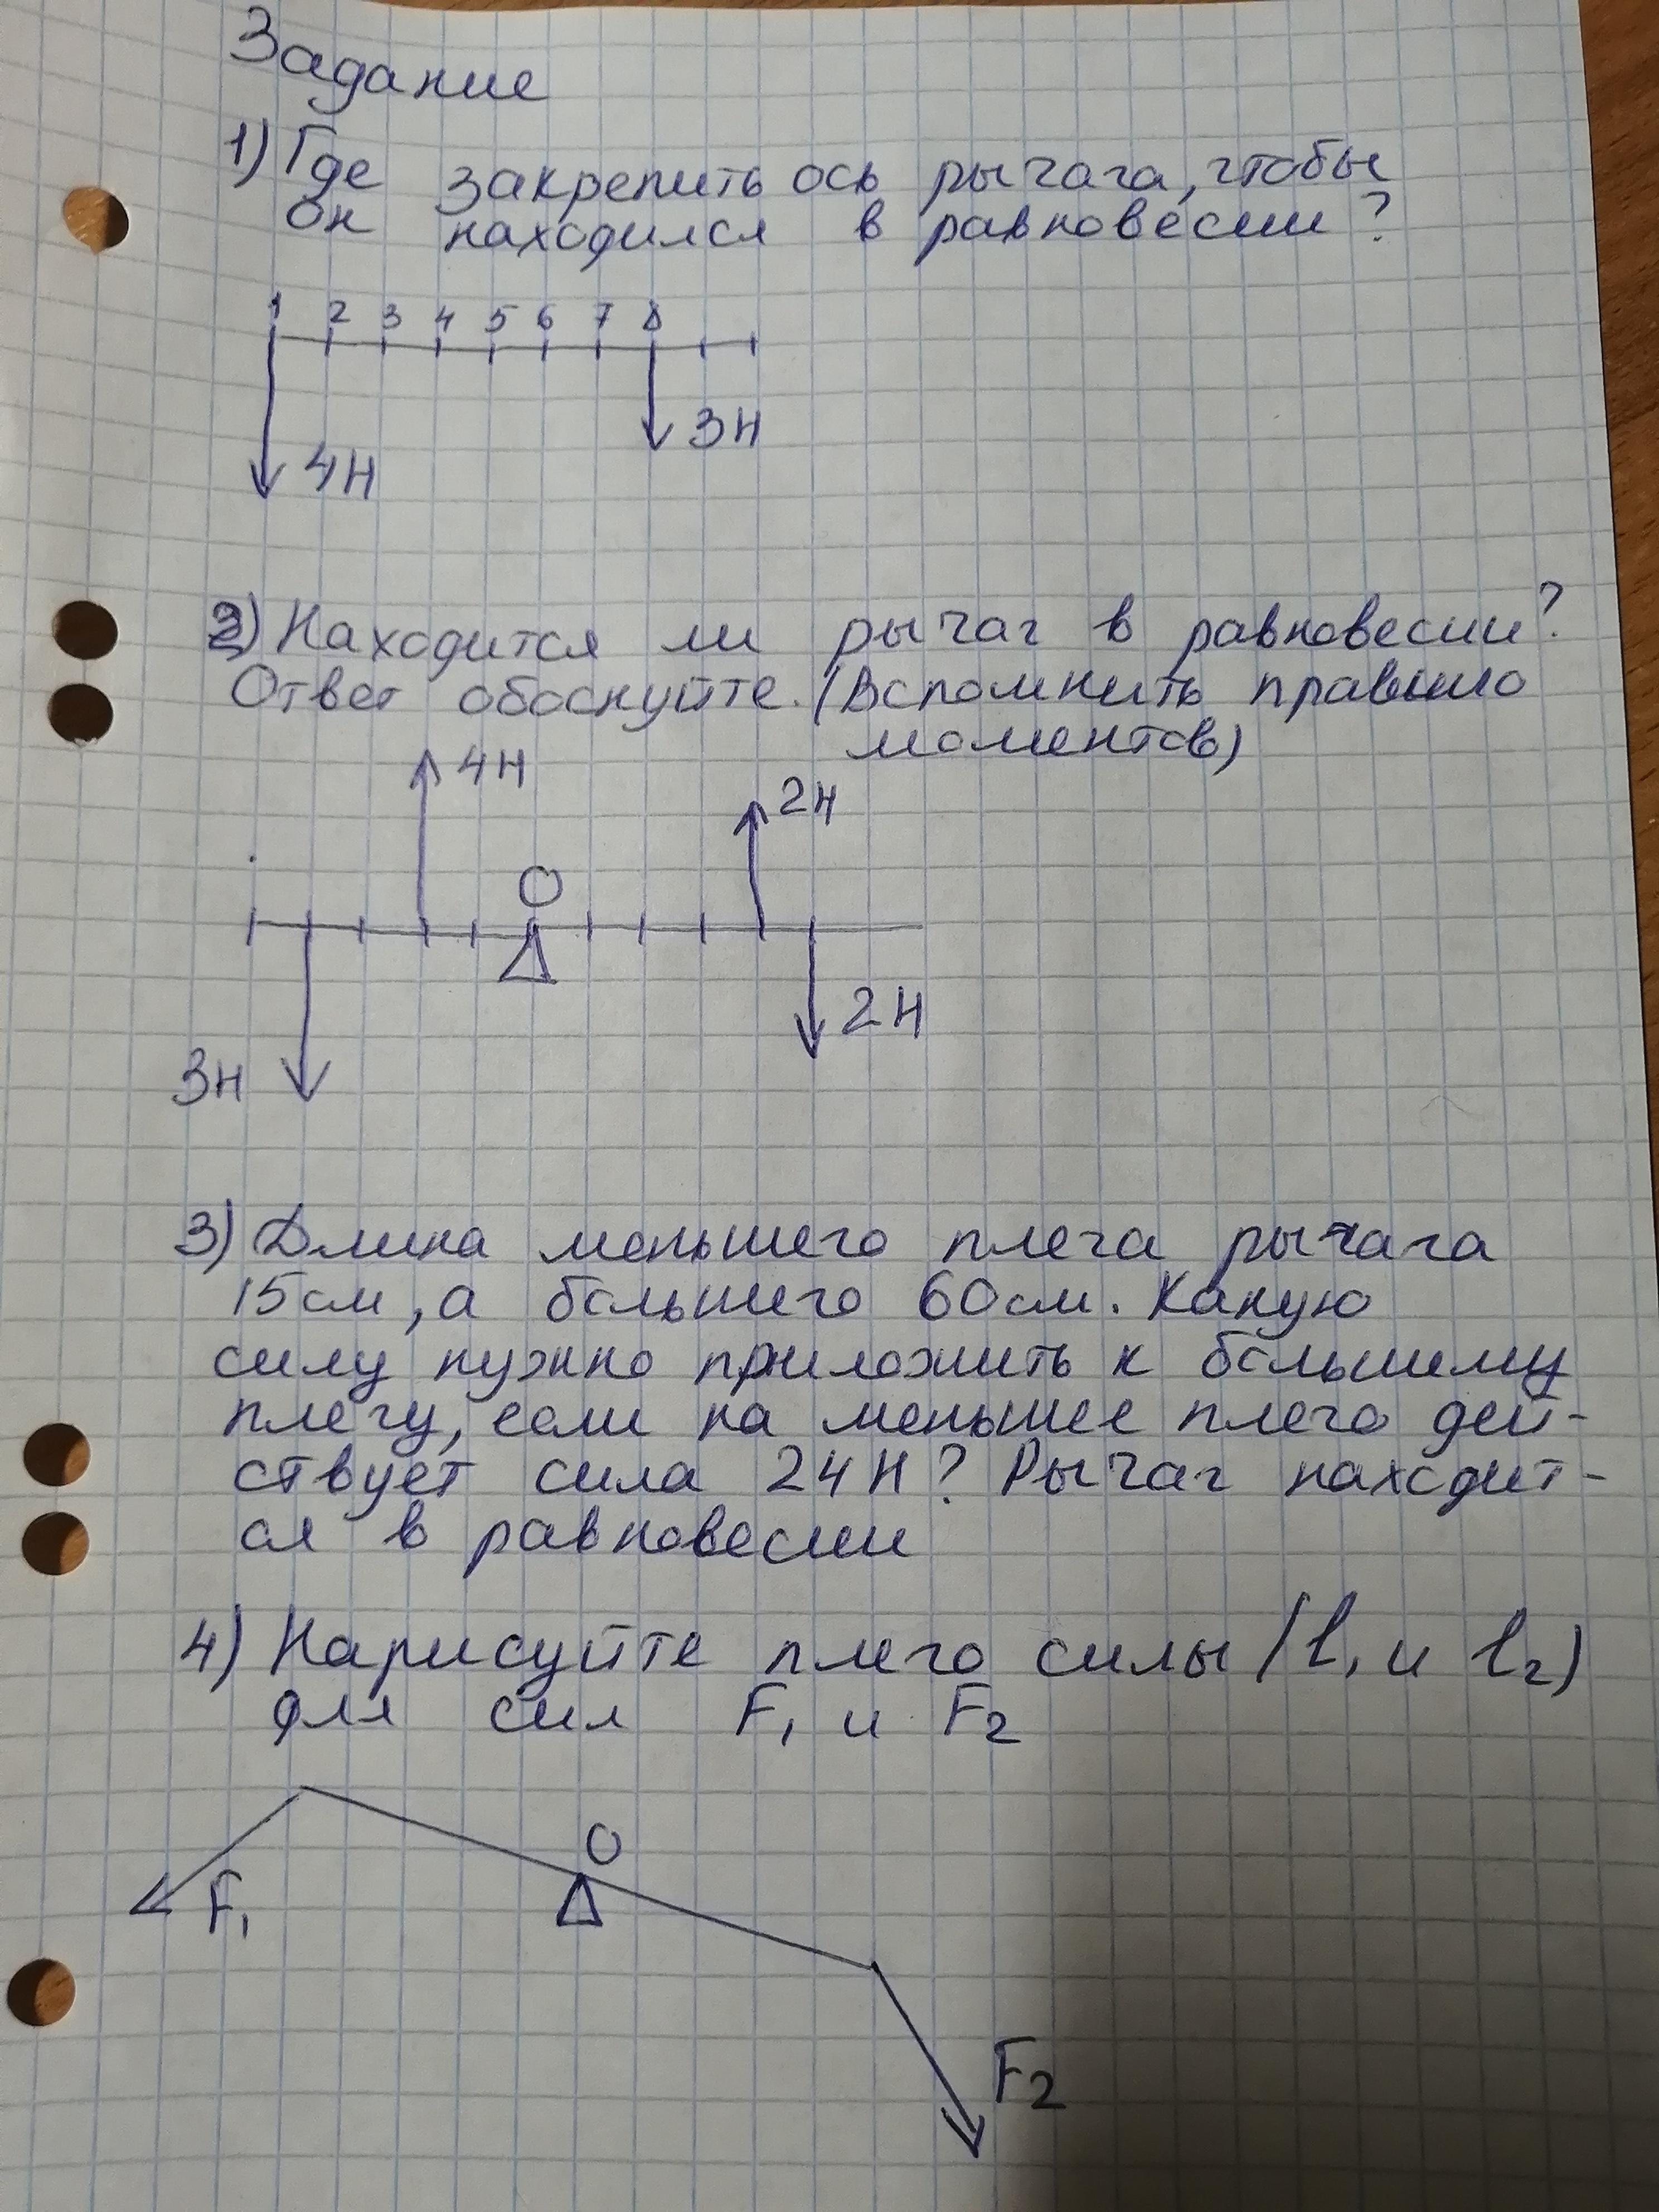 Задание
1) Где закрепить ось рычага, чтобы
он находился в равновесии?
1 2 3 4 5 6 7 8
3Н
4Н
2) Находится ли рычаг в равновесии?
Ответ обоснуйте. (Вспомнить правило
моментов)
4Н
2Н
О
2Н
3Н
3) Длина меньшего плеча рычага
15см, а большего 60см. Какую
силу нужно приложить к большему
плечу, если на меньшее плечо дей-
ствует сила 24Н? Рычаг находит-
ся в равновесии
4) Нарисуйте плечо силы (l₁ и l₂)
для сил F₁ и F₂
О
F₁
F₂